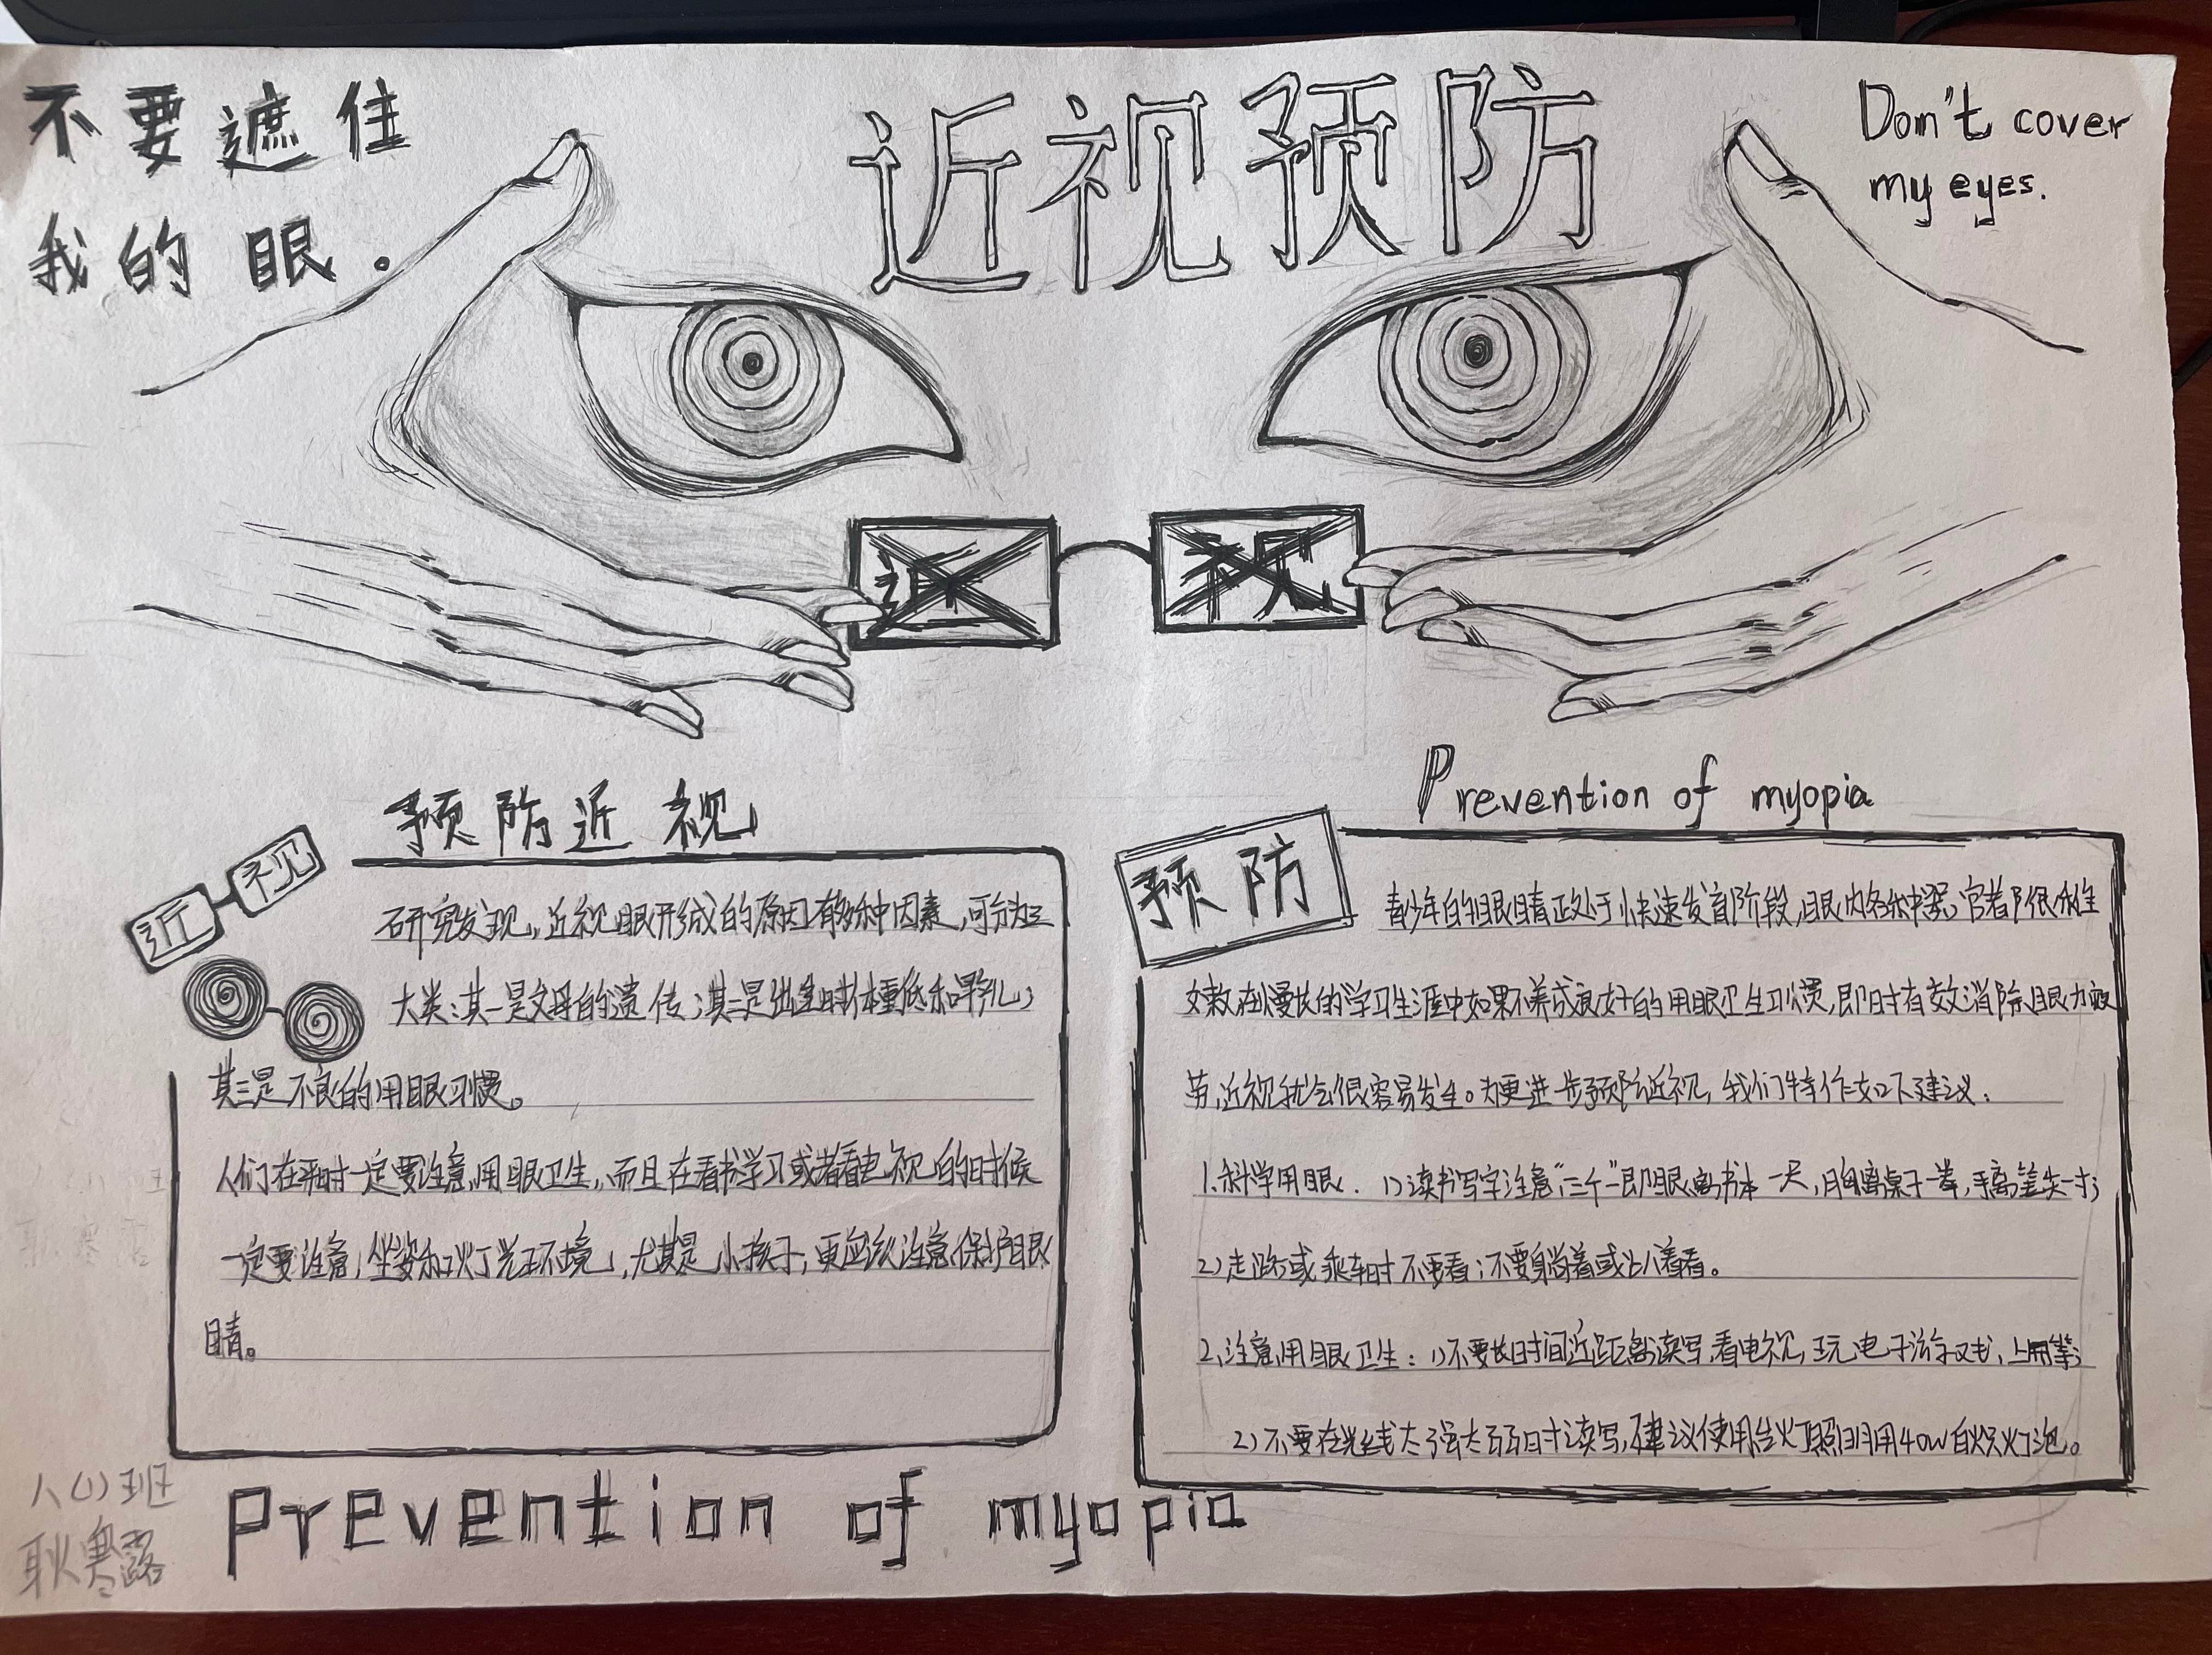 不要遮住
我的眼.
近视预防
Don't cover
my eyes.
近 视
预防近视
近 视
研究发现,近视眼形成的原因有多种因素,可分为三
大类:其一是父母的遗传;其二是出生时体重低和早产儿;
其三是不良的用眼习惯。
人们在平时一定要注意用眼卫生,而且在看书学习或者看电视的时候
一定要注意,坐姿和灯光环境,尤其是小孩子,更应该注意保护眼
睛。
Prevention of myopia
预防
青少年的眼睛正处于快速发育阶段,眼内各种器官都很稚
嫩在漫长的学习生涯中如果不养成良好的用眼卫生习惯,即时有效消除眼力疲
劳,近视就会很容易发生。为更进一步预防近视,我们特作如下建议:
1.科学用眼. 1)读书写字注意"三个一"即眼离书本一尺,胸离桌子一拳,手离笔尖一寸;
2)走路或乘车时不要看;不要躺着或趴着看。
2.注意用眼卫生:1)不要长时间近距离读写,看电视,玩电子游戏,上网等;
2)不要在光线太强太弱时读写,建议使用台灯照明用40W白炽灯泡。
Prevention of myopia
八(1)班
耿寒露